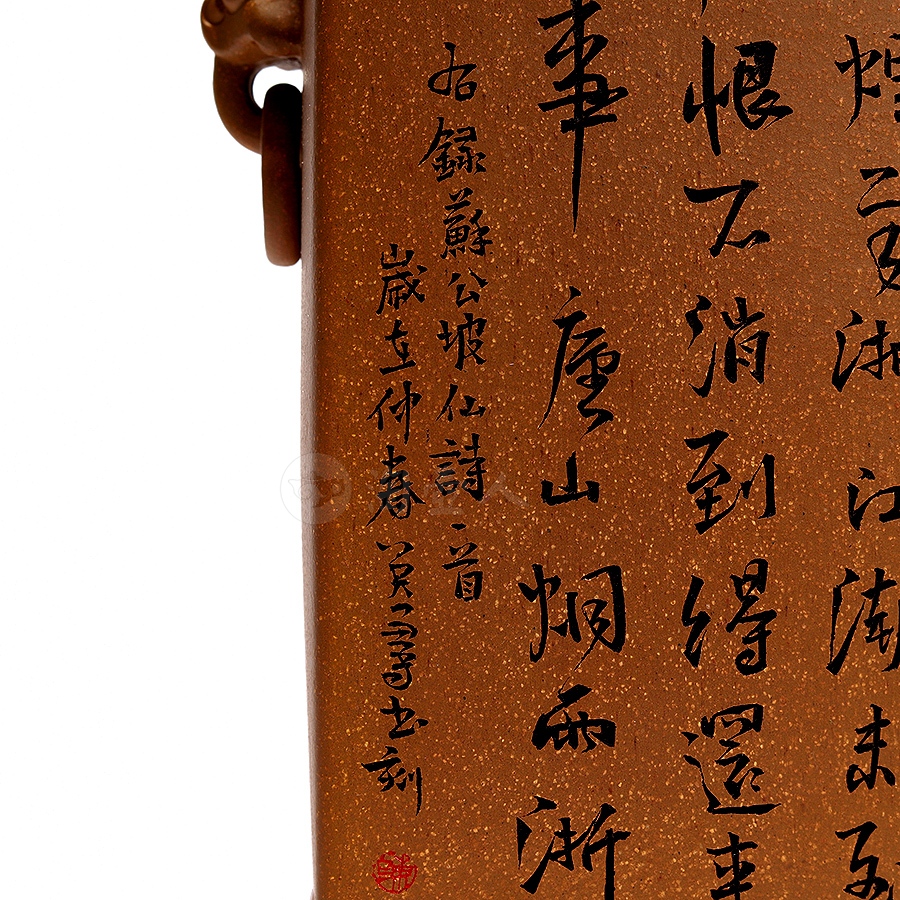 煙雨浙江潮未到
恨不消到得還來
事廬山烟雨浙
右録蘇公坡仙詩一首
歲在仲春
书刻